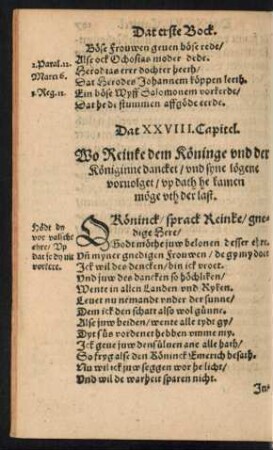 Dat erste Bock.
Böse Frouwen geuen böse rede/
2. Paral. 22. Alse ock Ochosias moder dede.
Herodias erer dochter heeth/
Marci 6. Dat Herodes Johannem köppen leeth.
3. Reg. 11. Ein böse Wyff Salomonem vorkerde/
Dat he de stummen affgöde eerde.
Dat XXVIII. Capitel.
Wo Reinke dem Köninge vnd der
Königinne dancket / vnd syne lögene
voruolget / vp dath he kamen
möge vth der last.
O Köninck / sprack Reinke / gne-
dige Here /
Godt möthe juw belonen desser ehre.
Vñ myner gnedigen Frouwen / de gy my doit
Ick wil des dencken / bin ick vroet.
Vnd juw des dancken so höchlicken /
Wente in allen Landen vnd Ryken.
Leuet nu nemande vnder der sunne /
Dem ick den schatt also wol günne.
Alse juw beiden / wente alle tydt gy /
Dyt süs vordenet hebben vmme my.
Ick geue juw den sülnen ane alle hath /
So fryg alse den Köninck Emerich besath.
Nu wil ick juw seggen wor he licht /
Vnd wil de warheit sparen nicht.
Hödt dy
vor valsche
ehre / Vp
dat se dy nicht
vorlere.